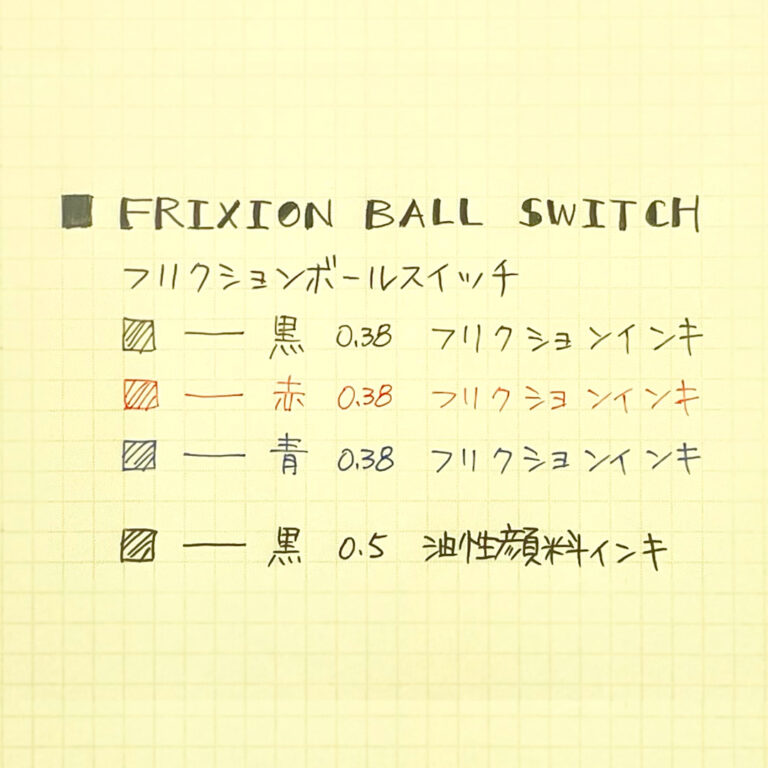 ■ FRIXION BALL SWITCH
フリクションボールスイッチ
黒 0.38 フリクションインキ
赤 0.38 フリクションインキ
青 0.38 フリクションインキ
黒 0.5 油性顔料インキ